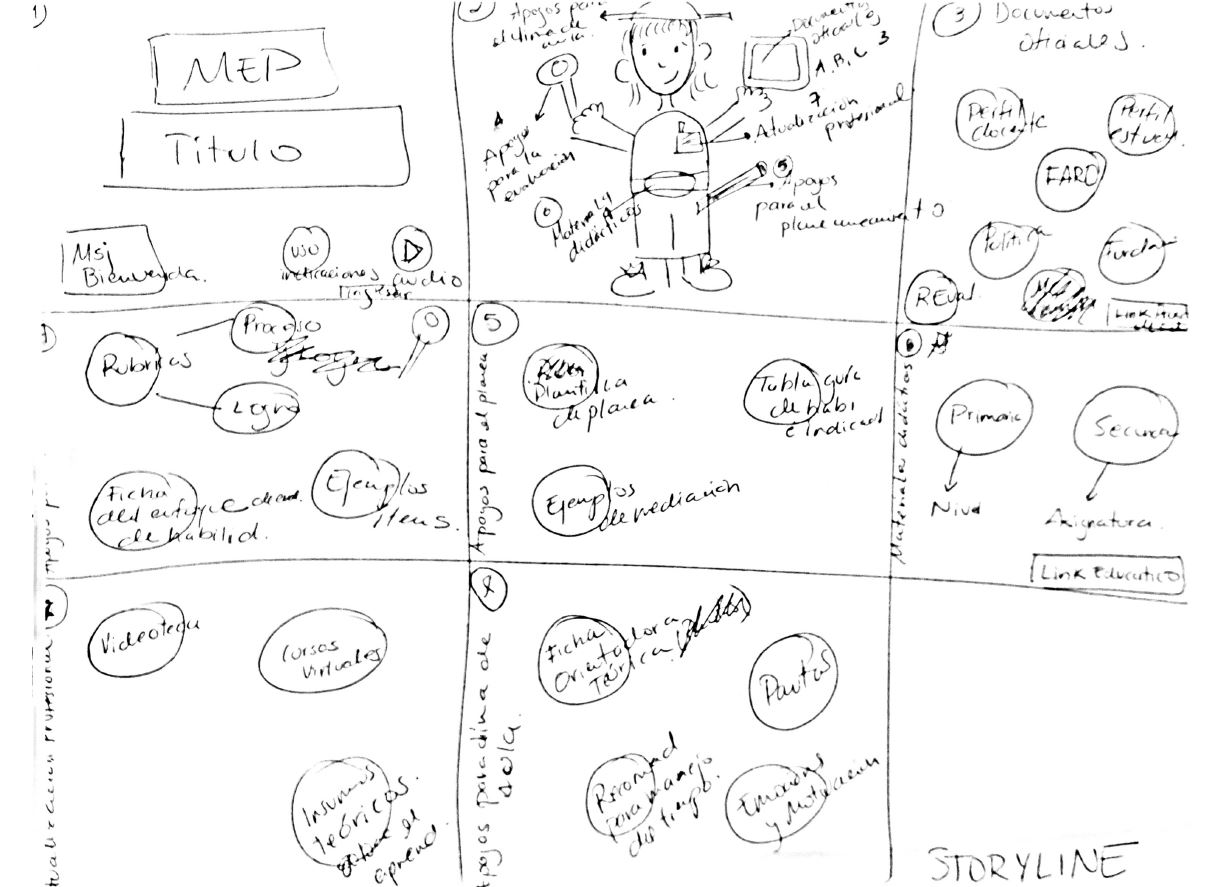 1)
MEP
Título
Msj
Bienvenida.
uso
indicaciones
audio
Ingresar
2
Apoyos para
el clima de
aula.
Documentos
oficiales
A, B, C 3
7
Atualización
profesional
Apoyos
para la
evaluación
6
Material y
didácticos
5
Apoyos
para el
planeamiento
3 Documentos
oficiales.
Perfil
docente
Perfil
estud.
FARO
Política
Fundam
REval.
Link
Rubricas
Proceso
Logro
Ficha
del enfoque
de habilid.
Ejemplos
Items.
5
Apoyos para el planea
Plantilla
de planea.
Tabla guía
de habi
e indicad
Ejemplos
de mediación
6
Materiales didácticos
Primaria
Secunda
Nivel
Asignatura.
Link Educatico
Videoteca
Cursos
Virtuales
Insumos
teóricos.
el
aprend.
Apoyos para clima de
aula.
Ficha
Orientadora
Teórica
Pautas
Recomend
para manejo
del tiempo.
Emociones
y Motivación
STORYLINE